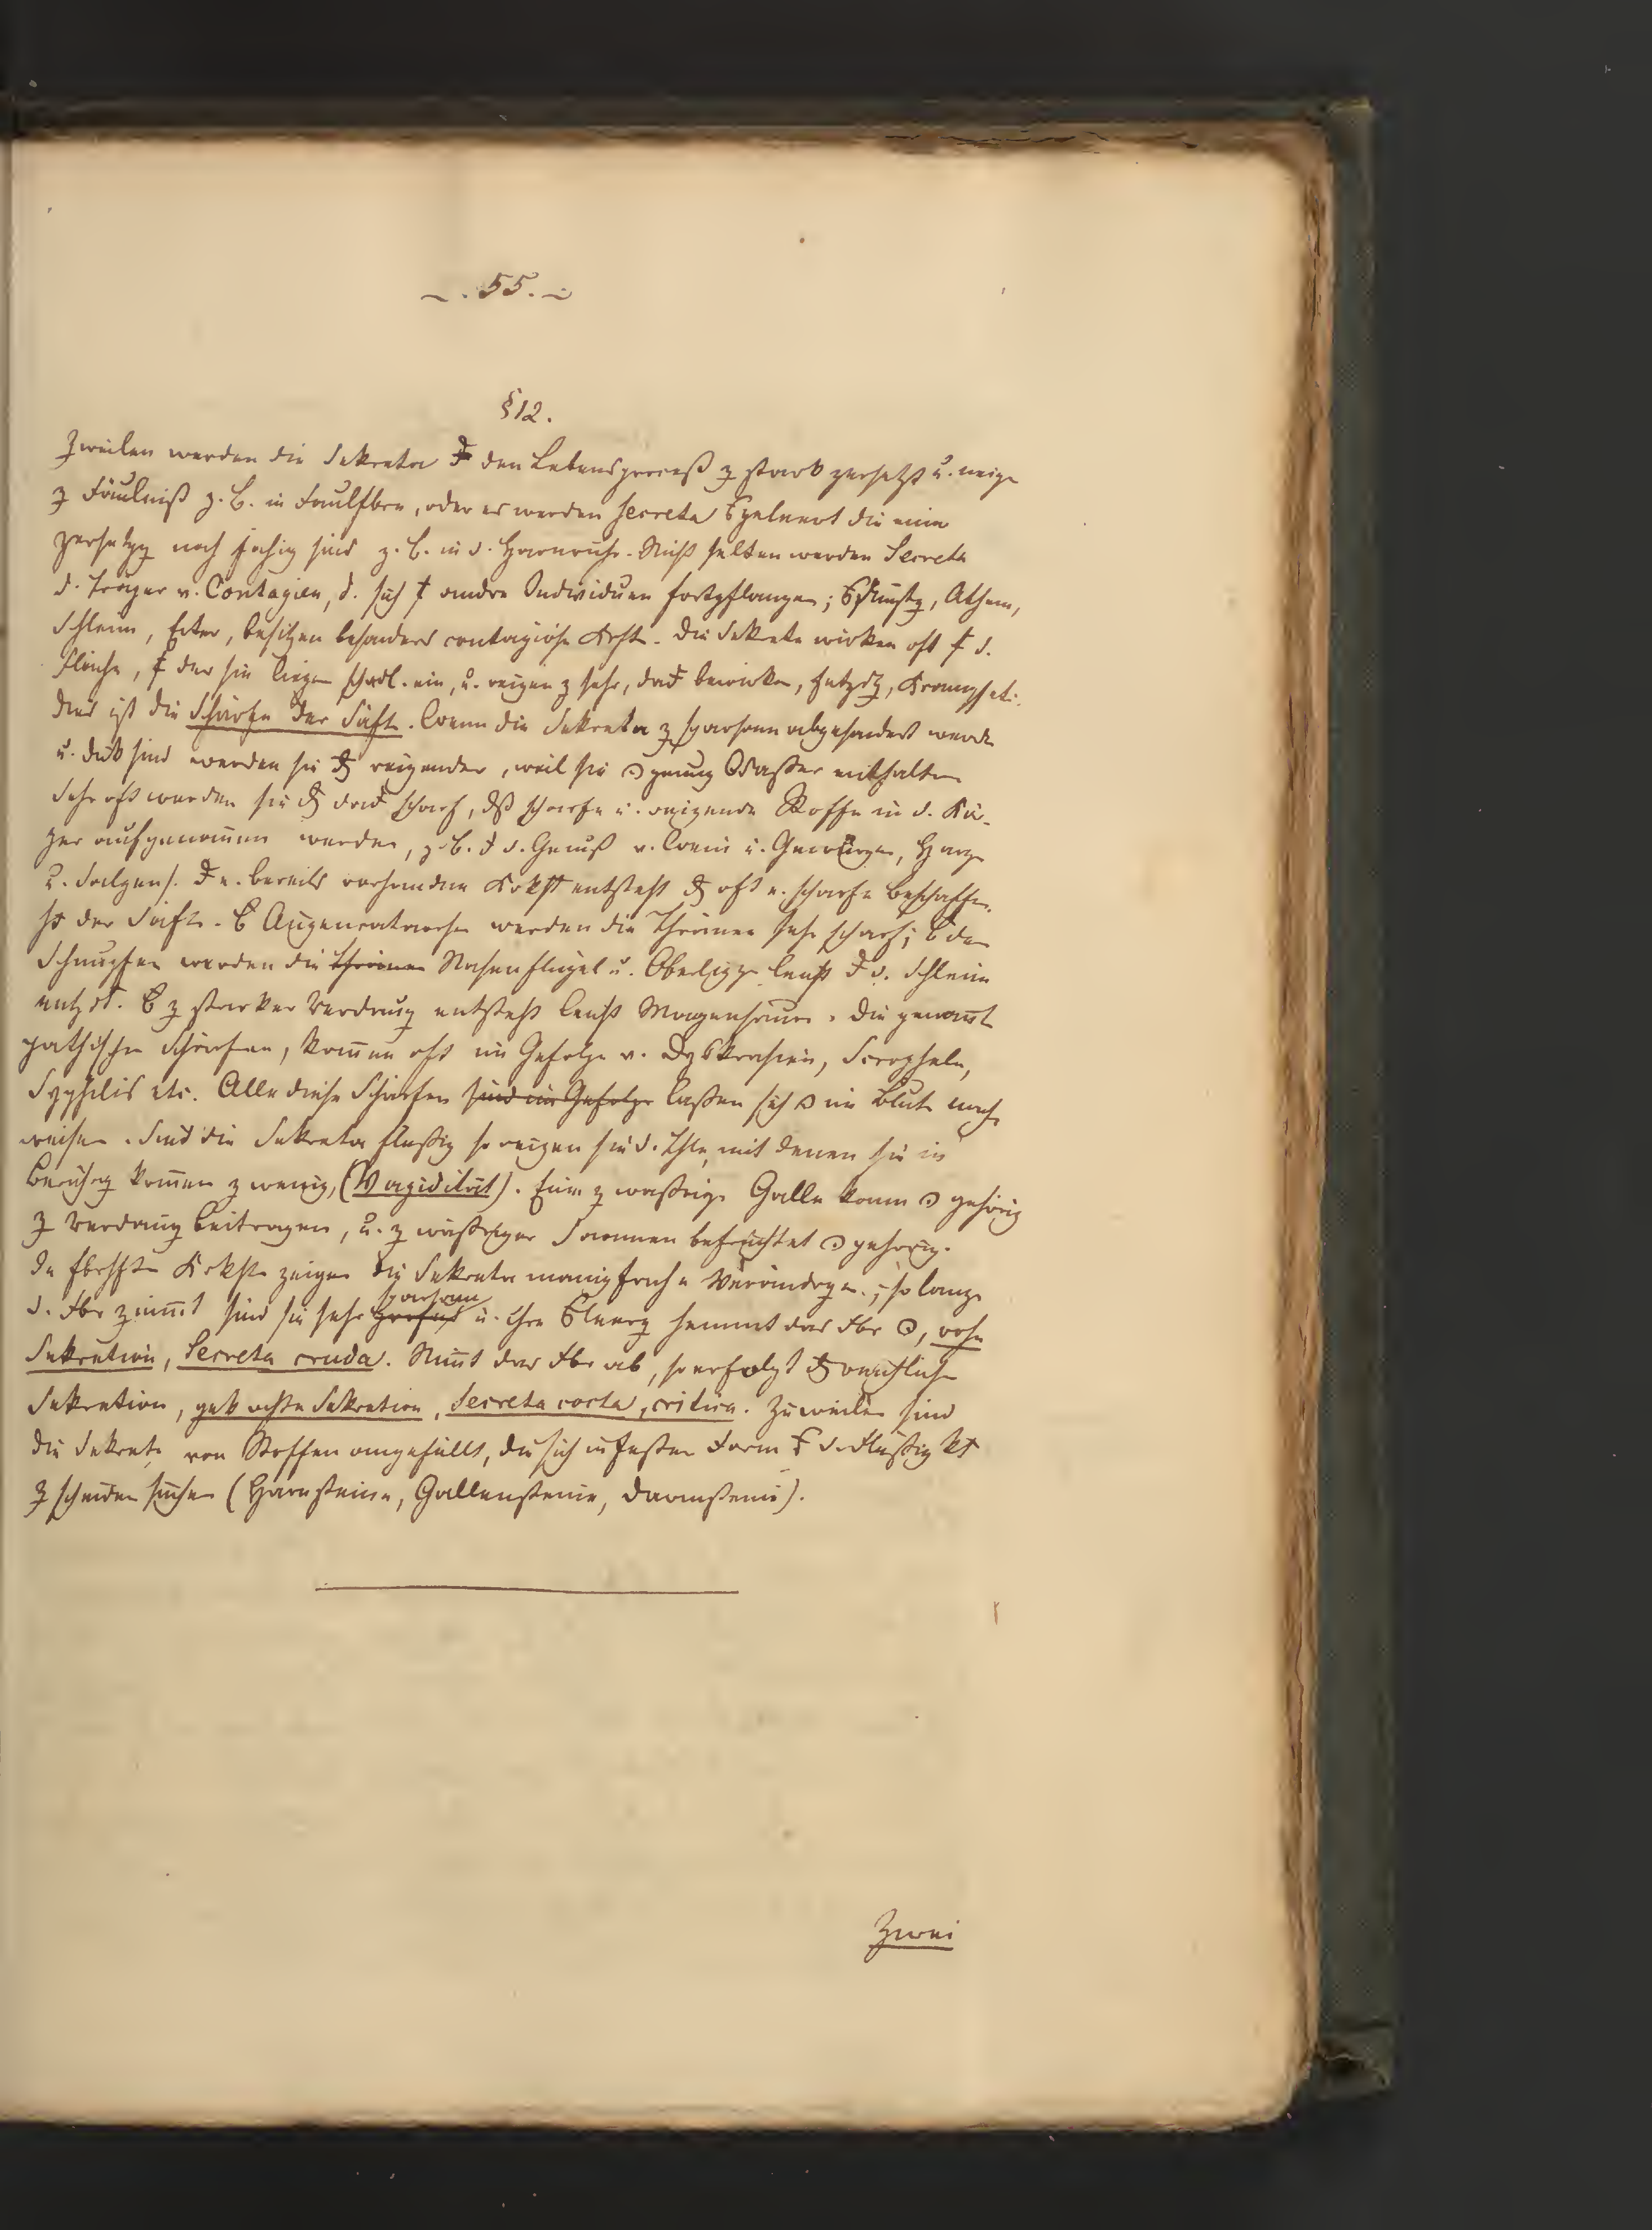 -. 55. -
§ 12.
Zuweilen werden die Sekreta den Lebensproceß z stark zersetzt u. neige
z Fäulniß z. B. in Faulfbrn, oder es werden Secreta die eine
Zersetzg noch fähig sind z. B. in d. Harnruhr. Nicht selten werden Secreta
d. Träger v. Contagien, d. sich andre Individuen fortpflanzen; Athem,
Schleim, Eiter, besitzen besonders contagiöse Krft. Die Sekreta wirken oft d.
Fläche, der sie liegen schädl. ein, u. reizen z sehr, bewirken, Krampf etc.
Dies ist die Schärfe der Säfte. Wenn die Sekreta z sparsam abgesondert werde
u. dick sind werden sie reizender, weil sie genug Wasser enthalten
Sehr oft werden sie scharf, dß scharfe u. reizende Stoffe in d. Kör-
per aufgenommen werden, z. B. d. Genuß v. Wein u. Gewürzen, Harze
u. Salzen. e. bereits vorhandene Krkht entsteht oft e. scharfe Beschaffen-
ht der Säfte. Augenkatarrhe werden die Thränen sehr scharf; den
Schnupfen werden die Thränen Nasenflügel u. Oberlippe leicht d. Schleim
entzdt. z starker Verdauug entsteht leicht Magensäure. Die genannt
pathische Schärfen, kommen oft im Gefolge v. Dyskrasien, Scropheln,
Syphilis etc. Alle diese Schärfen sind im Gefolge lassen sich im Blute nach-
weisen. Sind die Sekreta flüssig so reizen sie d. Thle, mit denen sie in
Berührg kommen z wenig, (Vapidität). Eine z wäßrige Galle kann gehörig
z Verdauug beitragen, u. z wäßriger Saamen befruchtet gehörig.
In fbrhften Krkhte zeigen die Sekreta mannigfache Verändrgen; so lange
sparsam
d. Fbr zunimmt sind sie sehr u. ihre hemmt das Fbr, rohe
Sekretion, Secreta cruda. Nimmt das Fbr ab, so erfolgt reichliche
Sekretion, gekochte Sekretion, Secreta cocta, critica. Zuweilen sind
die Sekrete von Stoffen angefüllt, die sich in fester Form d. Flüssigkt
z scheiden suchen (Harnsteine, Gallensteine, Darmsteine).
Zwei